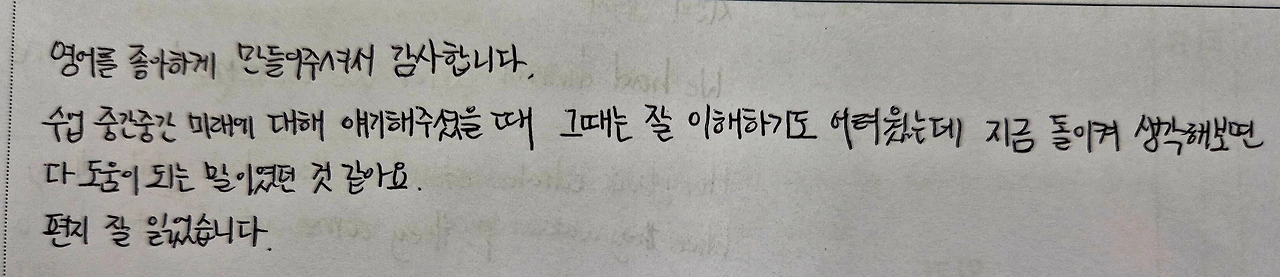 영어를 좋아하게 만들어주셔서 감사합니다.
수업 중간중간 미래에 대해 얘기해주셨을 때 그때는 잘 이해하기도 어려웠는데 지금 돌이켜 생각해보면
다 도움이 되는 말이였던 것 같아요.
편지 잘 읽었습니다.